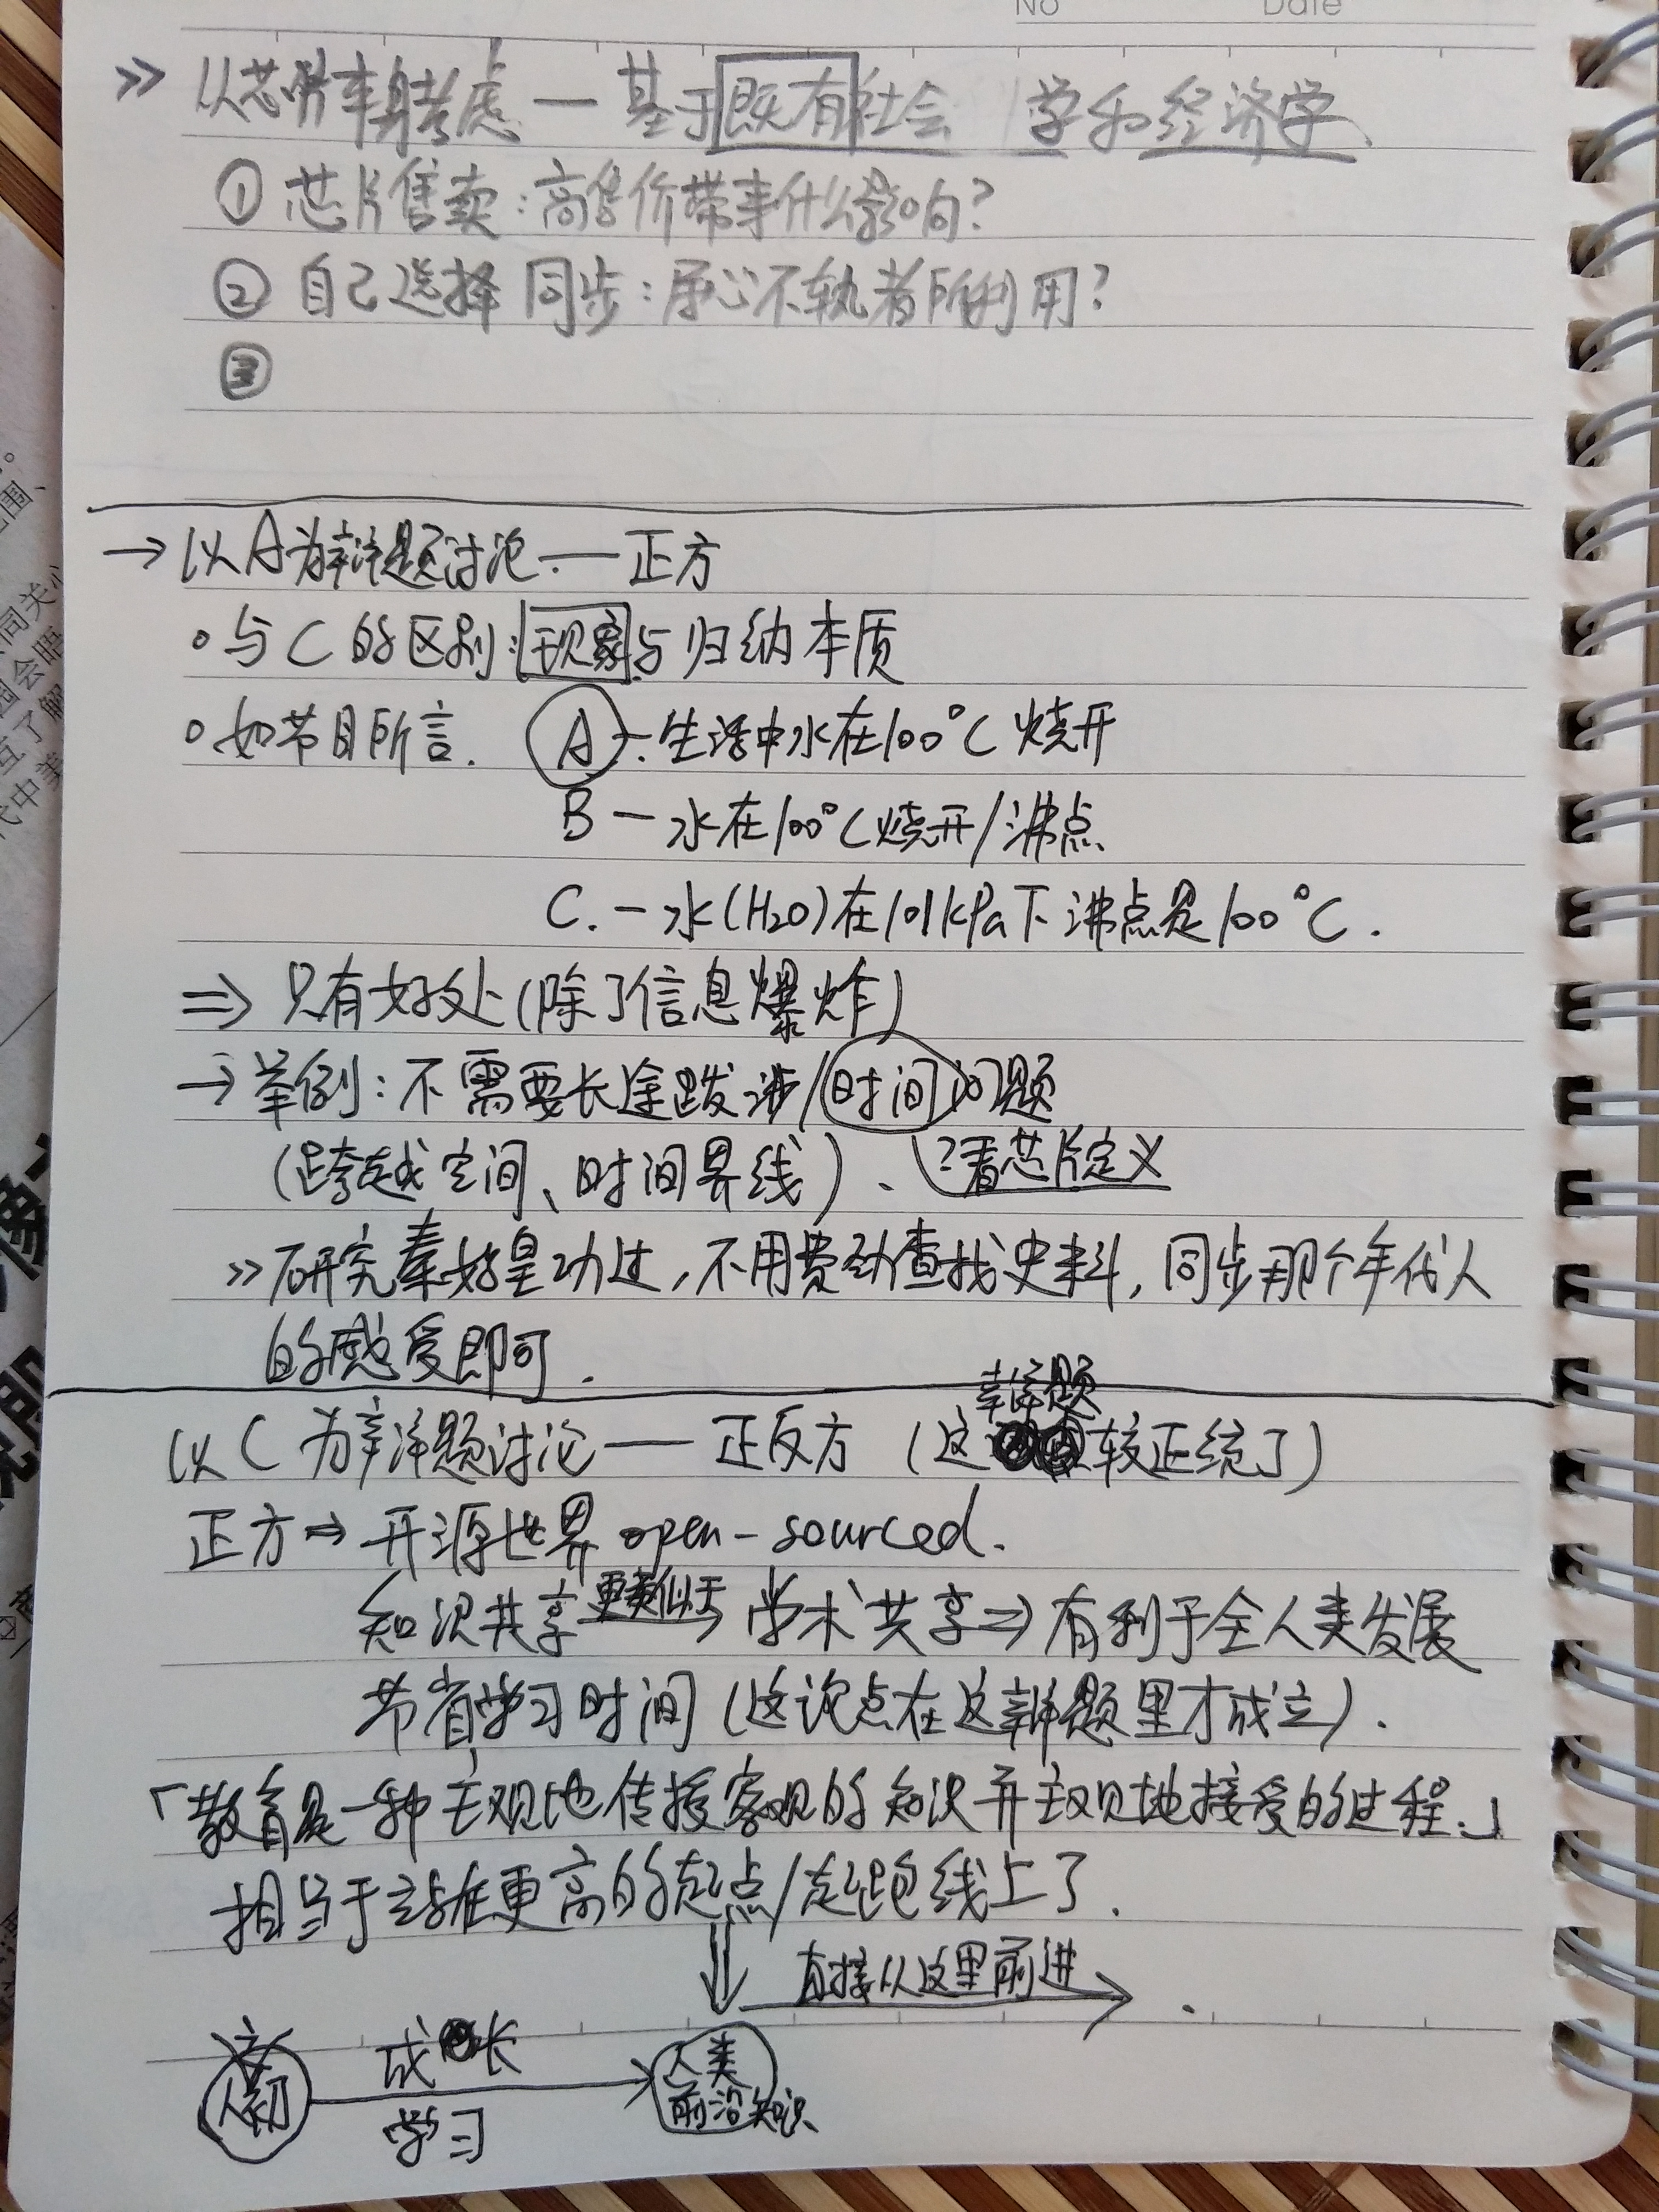 No Date
>> 以芯片本身考虑 — 基于既有社会学和经济学
① 芯片售卖：高售价带来什么影响？
② 自己选择同步：居心不轨者所利用？
③
→ 以A为辩题讨论 — 正方
。与C的区别：现象与归纳本质
。如节目所言. A — 生活中水在100°C烧开
B — 水在100°C烧开/沸点
C. — 水(H2O)在101kPa下沸点是100°C.
⇒ 只有好处(除了信息爆炸)
→ 举例：不需要长途跋涉/时间问题
(跨越空间、时间界线)、 ?看芯片定义
>> 研究秦始皇功过，不用费劲查找史料，同步那个年代人
的感受即可.
辩题
以C为辩题讨论 — 正反方 (这较正统了)
正方 ⇒ 开源世界 open-sourced.
知识共享 更类似于→ 学术共享 ⇒ 有利于全人类发展
节省学习时间 (这论点在这辩题里才成立).
「教育是一种主观地传授客观的知识并主观地接受的过程.」
相当于站在更高的起点/起跑线上了.
直接从这里前进
成长 人类
人初 前沿知识
学习